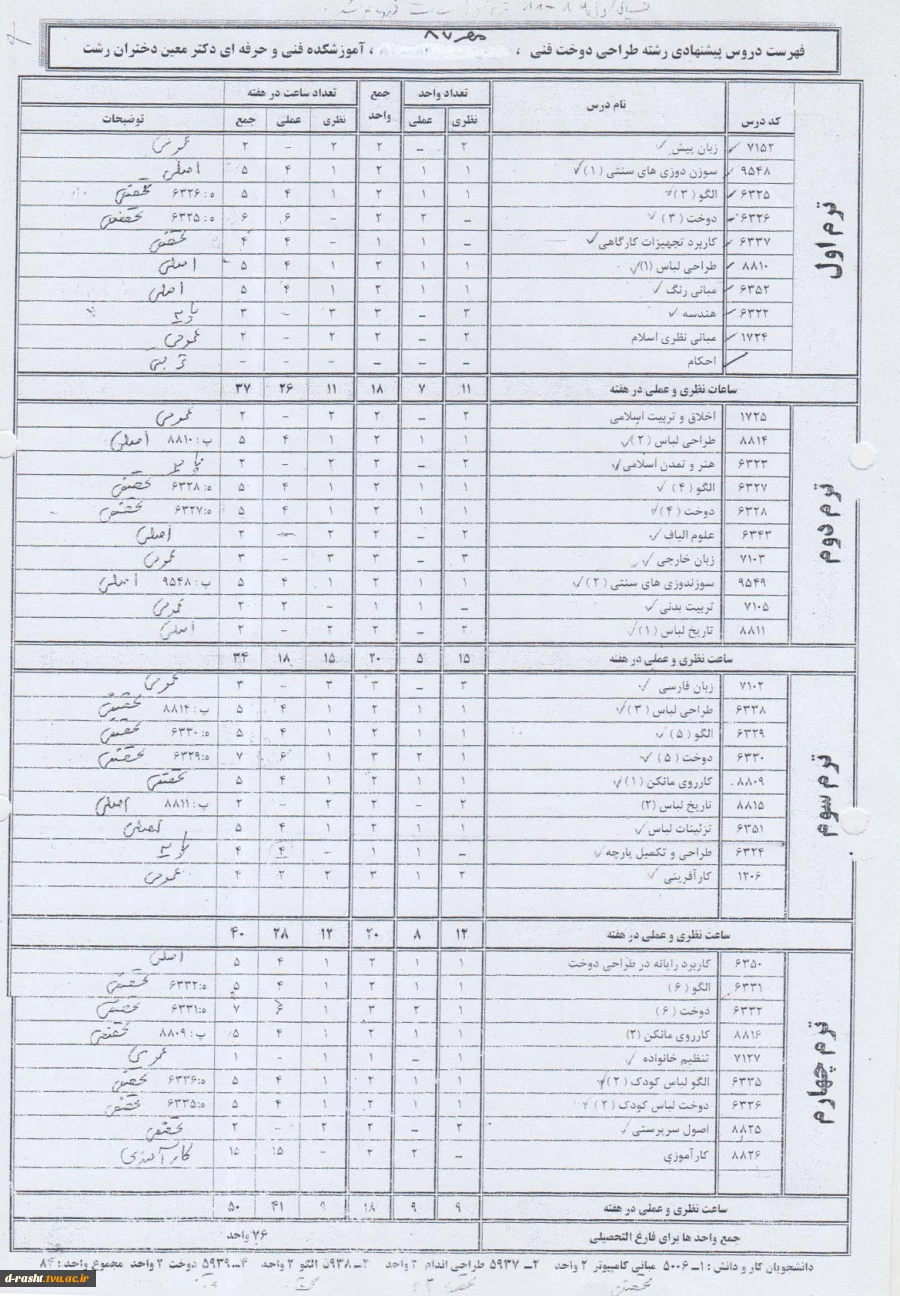 مهر ۸۷
فهرست دروس پیشنهادی رشته طراحی دوخت فنی ، ، آموزشکده فنی و حرفه ای دکتر معین دختران رشت
کد درس نام درس تعداد واحد جمع واحد تعداد ساعت در هفته توضیحات
نظری عملی نظری عملی جمع
ترم اول
۷۱۵۲ زبان پیش ۲ – ۲ ۲ – ۲ عمومی
۹۵۴۸ سوزن دوزی های سنتی (۱) ۱ ۱ ۲ ۱ ۴ ۵ اصلی
۶۳۲۵ الگو (۳) ۱ ۱ ۲ ۱ ۴ ۵ ه: ۶۳۲۶ تخصصی
۶۳۲۶ دوخت (۳) – ۲ ۲ – ۶ ۶ ه: ۶۳۲۵ تخصصی
۶۳۳۷ کاربرد تجهیزات کارگاهی – ۱ ۱ – ۴ ۴ تخصصی
۸۸۱۰ طراحی لباس (۱) ۱ ۱ ۲ ۱ ۴ ۵ اصلی
۶۳۵۲ مبانی رنگ ۱ ۱ ۲ ۱ ۴ ۵ اصلی
۶۳۲۲ هندسه ۳ – ۳ ۳ – ۳ پایه
۱۷۲۴ مبانی نظری اسلام ۲ – ۲ ۲ – ۲ عمومی
احکام – – – – – –
ساعات نظری و عملی در هفته ۱۱ ۷ ۱۸ ۱۱ ۲۶ ۳۷
ترم دوم
۱۷۲۵ اخلاق و تربیت اسلامی ۲ – ۲ ۲ – ۲ عمومی
۸۸۱۴ طراحی لباس (۲) ۱ ۱ ۲ ۱ ۴ ۵ پ: ۸۸۱۰ اصلی
۶۳۲۳ هنر و تمدن اسلامی ۲ – ۲ ۲ – ۲ پایه
۶۳۲۷ الگو (۴) ۱ ۱ ۲ ۱ ۴ ۵ ه: ۶۳۲۸ تخصصی
۶۳۲۸ دوخت (۴) ۱ ۱ ۲ ۱ ۴ ۵ ه: ۶۳۲۷ تخصصی
۶۳۴۳ علوم الیاف ۲ – ۲ ۲ – ۲ اصلی
۷۱۰۳ زبان خارجی ۳ – ۳ ۳ – ۳ عمومی
۹۵۴۹ سوزندوزی های سنتی (۲) ۱ ۱ ۲ ۱ ۴ ۵ پ: ۹۵۴۸ اصلی
۷۱۰۵ تربیت بدنی – ۱ ۱ – ۲ ۲ عمومی
۸۸۱۱ تاریخ لباس (۱) ۲ – ۲ ۲ – ۲ اصلی
ساعت نظری و عملی در هفته ۱۵ ۵ ۲۰ ۱۵ ۱۸ ۳۴
ترم سوم
۷۱۰۲ زبان فارسی ۳ – ۳ ۳ – ۳ عمومی
۶۳۳۸ طراحی لباس (۳) ۱ ۱ ۲ ۱ ۴ ۵ پ: ۸۸۱۴ تخصصی
۶۳۲۹ الگو (۵) ۱ ۱ ۲ ۱ ۴ ۵ ه: ۶۳۳۰ تخصصی
۶۳۳۰ دوخت (۵) ۱ ۲ ۳ ۱ ۶ ۷ ه: ۶۳۲۹ تخصصی
۸۸۰۹ کارروی مانکن (۱) ۱ ۱ ۲ ۱ ۴ ۵ تخصصی
۸۸۱۵ تاریخ لباس (۲) ۲ – ۲ ۲ – ۲ پ: ۸۸۱۱ اصلی
۶۳۵۱ تزئینات لباس ۱ ۱ ۲ ۱ ۴ ۵ اصلی
۶۳۲۴ طراحی و تکمیل پارچه – ۱ ۱ – ۴ ۴ پایه
۱۲۰۶ کارآفرینی ۲ ۱ ۳ ۲ ۲ ۴ عمومی
ساعت نظری و عملی در هفته ۱۲ ۸ ۲۰ ۱۲ ۲۸ ۴۰
ترم چهارم
۶۳۵۰ کاربرد رایانه در طراحی دوخت ۱ ۱ ۲ ۱ ۴ ۵ اصلی
۶۳۳۱ الگو (۶) ۱ ۱ ۲ ۱ ۴ ۵ ه: ۶۳۳۲ تخصصی
۶۳۳۲ دوخت (۶) ۱ ۲ ۳ ۱ ۶ ۷ ه: ۶۳۳۱ تخصصی
۸۸۱۶ کارروی مانکن (۲) ۱ ۱ ۲ ۱ ۴ ۵ پ: ۸۸۰۹ تخصصی
۷۱۲۷ تنظیم خانواده ۱ – ۱ ۱ – ۱ عمومی
۶۳۳۵ الگو لباس کودک (۲) ۱ ۱ ۲ ۱ ۴ ۵ ه: ۶۳۳۶ تخصصی
۶۳۳۶ دوخت لباس کودک (۲) ۱ ۱ ۲ ۱ ۴ ۵ ه: ۶۳۳۵ تخصصی
۸۸۲۵ اصول سرپرستی ۲ – ۲ ۲ – ۲ تخصصی
۸۸۲۶ کارآموزی – ۲ ۲ – ۱۵ ۱۵ کارآموزی
ساعت نظری و عملی در هفته ۹ ۹ ۱۸ ۹ ۴۱ ۵۰
جمع واحد ها برای فارغ التحصیلی ۷۶ واحد
دانشجویان کار و دانش : ۱ـ ۵۰۰۶ مبانی کامپیوتر ۲ واحد ۲ـ ۵۹۳۷ طراحی اندام ۲ واحد ۳ـ ۵۹۳۸ الگو ۲ واحد ۴ـ ۵۹۳۹ دوخت ۲ واحد مجموع واحد : ۸۴
d-rasht.tvu.ac.ir